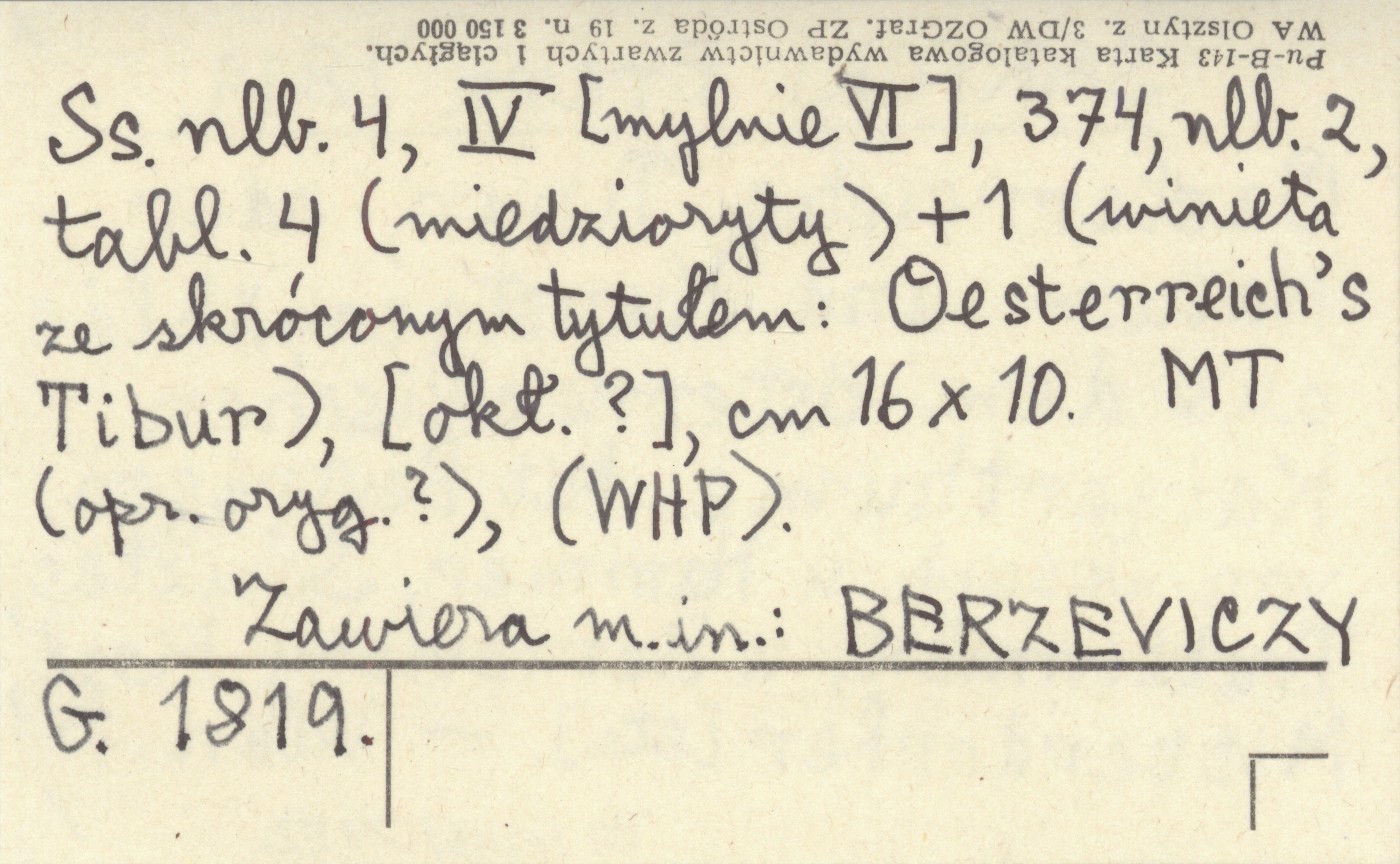 WA Olsztyn z. 3/DW OZGraf. ZP Ostróda z. 19 n. 3 150 000
Pu-B-143 Karta katalogowa wydawnictw zwartych i ciągłych.
Ss. nlb. 4, IV [mylnie VI], 374, nlb. 2,
tabl. 4 (miedzioryty) + 1 (winieta
ze skróconym tytułem: Oesterreich's
Tibur), [okł. ?], cm 16 x 10. MT
(opr. oryg. ?), (WHP).
Zawiera m.in.: BERZEVICZY
G. 1819.